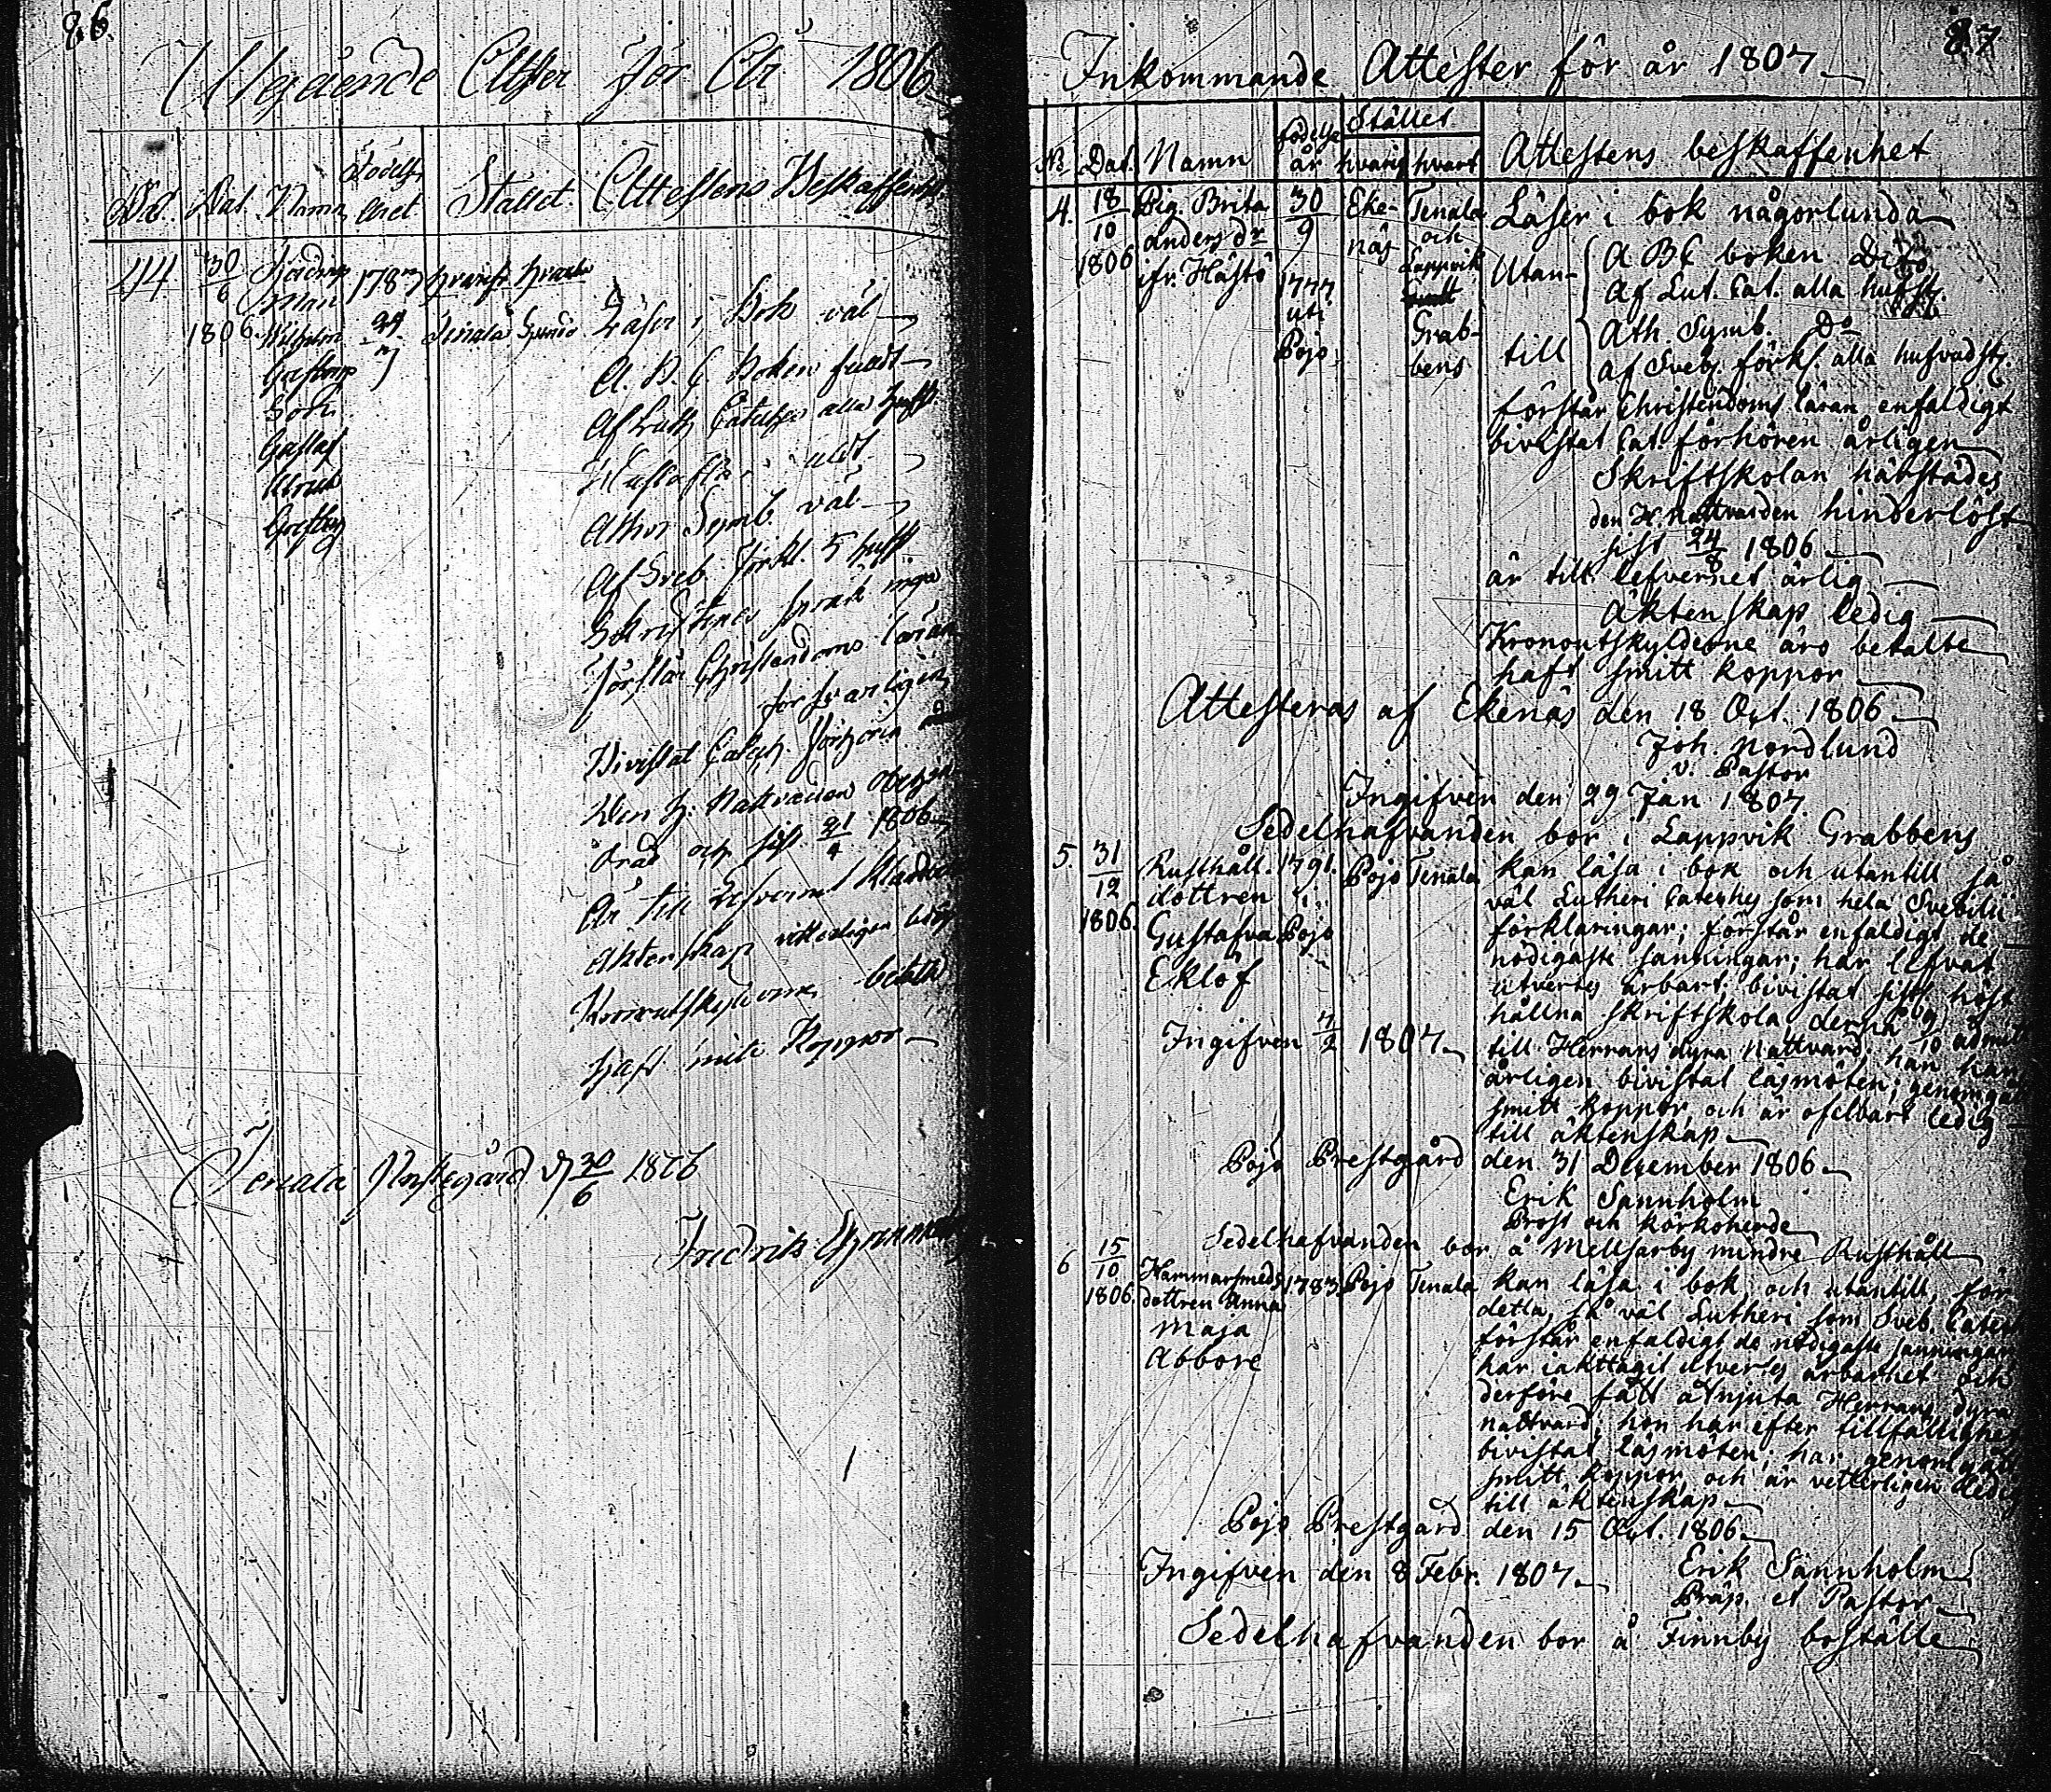 86.
Utgående Attster för År 1806
No. Dat. Namn Födelse Året Stället. Attestens Beskaffenhet
44 30/6 1806. 1787 24/7
hvarifr. hvart
Tenala
Wilhelm
Gustaf
Läser i Bok väl
A. B. C. Boken fullt
Af Luth. Cateches alla hufst.
Hustaflan
Athan. Symb. väl
Af Sveb. Förkl. 5 hufst
Skriftenes språk inga
Förstår Christendoms läran
försvarligen
Bivistat Catech. Förhören
Den H. Nattvarden
och sist 21/4 1806
Är till Lefvernet
Äktenskap vitterligen ledig
Kronoutskylderna betalta
haft Koppor
Tenala Prestegård d 30/6 1806
Fredrik
87
Inkommande Attester för år 1807
No Dat. Namn födelse år Stället hvarifr hvart Attestens beskaffenhet
4. 18/10 1806 Pig. Brita Anders dr ifr. Hästö 30/9 1777 uti Pojo Ekenäs Tenala och Lappvik Grabbens
Läser i bok någorlunda
Utantill
A B C boken Dito
Af Lut. Cat. alla hufst.
Ath. Symb. Do
af Sveb. förkl. alla hufvudst.
förstår Christendoms läran enfaldigt
bivistat Cat. förhören årligen
Skriftskolan härstädes
den H. Nattvarden hinderlöst
sist 24/8 1806
är till lefvernet ärlig
Äktenskap ledig
Kronoutskylderne äro betalte
haft smitt koppor
Attesteras af Ekenäs den 18 Oct. 1806
Joh. Nordlund
v. Pastor
Ingifven den 29 Jan 1807
Sedelhafvanden bor i Lappvik Grabbens
5 31/12 1806. Rusthåll. dottren Gustafva Eklöf 1791. i Pojo Pojo Tenala
kan läsa i bok och utantill så
väl Lutheri Cateches som hela Svebilii
förklaringar; förstår enfaldigt de
nödigaste sanningar; har lefvat
utvertes ärbart; bivistat sistl. höst
hållna skriftskola, derpå admit
till Herrans dyra Nattvard, han har
årligen bivistat läsmöten; genomgåt
smitt koppor, och är ofelbart ledig
till äktenskap
Ingifven 7/2 1807
Pojo Prestgård den 31 December 1806
Erik Sannholm
Prost och körkoherde
Sedelhafvanden bor å Mellsarby mindre Rusthåll
6 15/10 1806. Hammarsmeds dottren Anna Maja Abbore 1783 Pojo Tenala
kan läsa i bok och utantill, för
detta, så väl Lutheri som Sveb. Catech
förstår enfaldigt de nödigaste sanningar
har iakttagit utvertes ärbarhet och
derföre fått åtnjuta Herrans dyra
nattvard; hon har efter tillfällighet
bivistat läsmöten; har genomgått
smitt koppor, och är vetterligen ledig
till äktenskap
Pojo Prestgård den 15 Oct. 1806
Ingifven den 8 Febr. 1807
Erik Sannholm
Præp. et Pastor
Sedelhafvanden bor å Finnby boställe